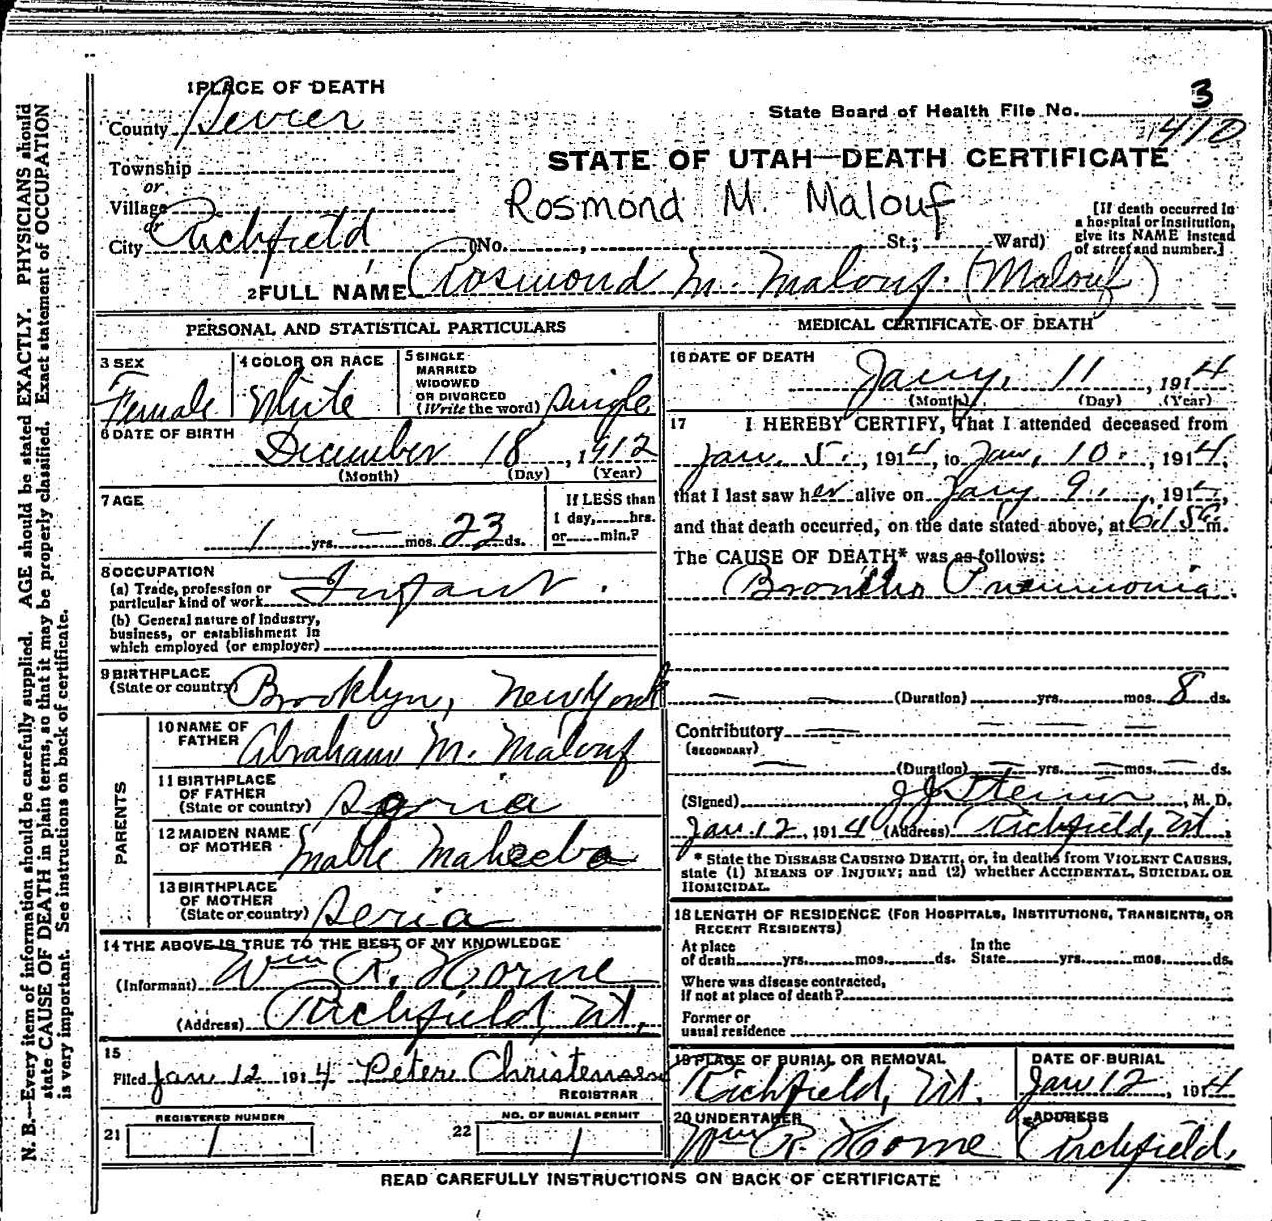 1 PLACE OF DEATH
County Sevier
State Board of Health File No. 3
1410
Township
or
Village
or
City Richfield
STATE OF UTAH—DEATH CERTIFICATE
Rosmond M. Malouf
(No. , St.; Ward)
[If death occurred in
a hospital or institution,
give its NAME instead
of street and number.]
2 FULL NAME Rosmond M. Malouf. (Malouf)
PERSONAL AND STATISTICAL PARTICULARS
3 SEX
Female
4 COLOR OR RACE
White
5 SINGLE
MARRIED
WIDOWED
OR DIVORCED
(Write the word) Single
6 DATE OF BIRTH
December 18, 1912
(Month) (Day) (Year)
7 AGE
1 yrs. — mos. 23 ds.
If LESS than
1 day, hrs.
or min.?
8 OCCUPATION
(a) Trade, profession or
particular kind of work Infant.
(b) General nature of industry,
business, or establishment in
which employed (or employer)
9 BIRTHPLACE
(State or country) Brooklyn, New York
PARENTS
10 NAME OF
FATHER Abraham M. Malouf
11 BIRTHPLACE
OF FATHER
(State or country)
12 MAIDEN NAME
OF MOTHER Mable
13 BIRTHPLACE
OF MOTHER
(State or country) Seria
14 THE ABOVE IS TRUE TO THE BEST OF MY KNOWLEDGE
(Informant) Wm R. Horne
(Address) Richfield, Ut.
15
Filed Jan 12 1914 Peter Christensen
REGISTRAR
REGISTERED NUMBER
21 1
NO. OF BURIAL PERMIT
22 1
MEDICAL CERTIFICATE OF DEATH
16 DATE OF DEATH
Jany. 11, 1914
(Month) (Day) (Year)
17 I HEREBY CERTIFY, That I attended deceased from
Jan. 5., 1914, to Jan. 10., 1914,
that I last saw her alive on Jany 9., 1914,
and that death occurred, on the date stated above, at 6:15 m.
The CAUSE OF DEATH* was as follows:
Broncho Pneumonia.
— — (Duration) yrs. mos. 8 ds.
Contributory — — — —
(SECONDARY)
— (Duration) — yrs. — mos. — ds.
(Signed) J J Steiner, M. D.
Jan. 12, 1914 (Address) Richfield, Ut.
* State the DISEASE CAUSING DEATH, or, in deaths from VIOLENT CAUSES,
state (1) MEANS OF INJURY; and (2) whether ACCIDENTAL, SUICIDAL OR
HOMICIDAL.
18 LENGTH OF RESIDENCE (FOR HOSPITALS, INSTITUTIONS, TRANSIENTS, OR
RECENT RESIDENTS)
At place
of death yrs. mos. ds.
In the
State yrs. mos. ds.
Where was disease contracted,
if not at place of death?
Former or
usual residence
19 PLACE OF BURIAL OR REMOVAL
Richfield, Ut.
DATE OF BURIAL
Jan 12, 1914
20 UNDERTAKER
Wm R. Horne
ADDRESS
Richfield.
READ CAREFULLY INSTRUCTIONS ON BACK OF CERTIFICATE
N. B.—Every item of information should be carefully supplied. AGE should be stated EXACTLY. PHYSICIANS should
state CAUSE OF DEATH in plain terms, so that it may be properly classified. Exact statement of OCCUPATION
is very important. See instructions on back of certificate.